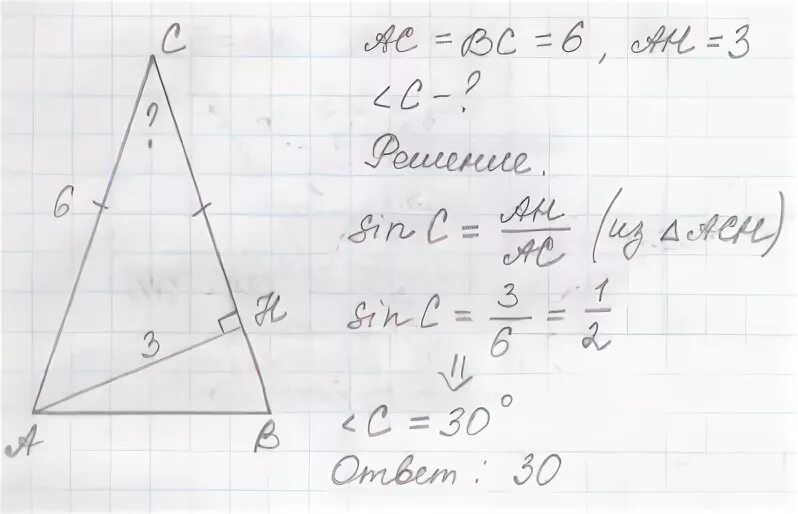 C
?
6
3
H
A
B
AC = BC = 6, AH = 3
<C - ?
Решение.
sin C = AH/AC (из △ACH)
sin C = 3/6 = 1/2
⇓
<C = 30°
Ответ: 30